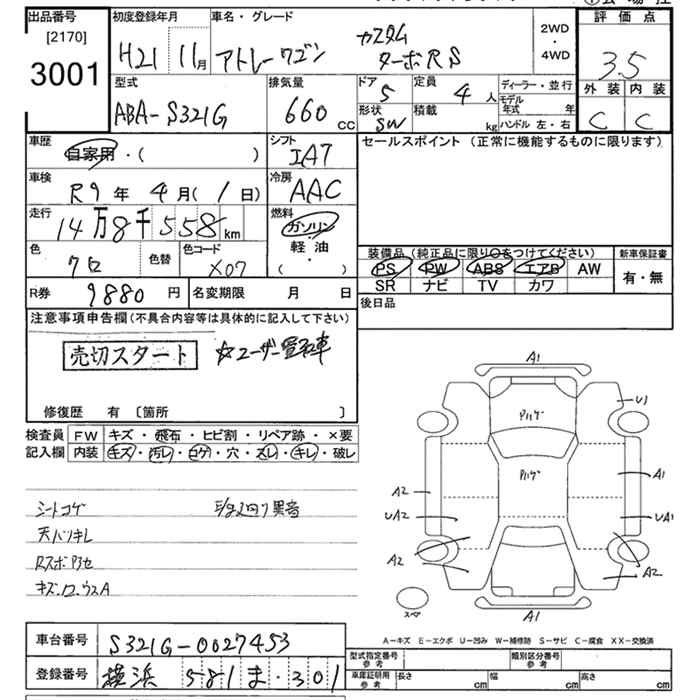 出品番号
[2170]
3001
初度登録年月
H21 11月
車名・グレード
アトレーワゴン
カスタム
ターボRS
2WD
・
4WD
評価点
3.5
外装 内装
C C
型式
ABA-S321G
排気量
660 cc
ドア
5
定員
4 人
形状
SW
積載
kg
ディーラー・並行
モデル年式 年
ハンドル 左・右
車歴
自家用・( )
シフト
IAT
車検
R9年 4月( 1日)
冷房
AAC
走行
14万8千558km
燃料
ガソリン
・
軽・油
( )
色
クロ
色替
色コード
X07
R券
9880円
名変期限 月 日
セールスポイント (正常に機能するものに限ります)
装備品 (純正品に限り〇をつけてください)
新車保証書
PS PW ABS エアB AW
SR ナビ TV カワ
有・無
後日品
注意事項申告欄(不具合内容等は具体的に記入して下さい)
売切スタート
☆ユーザー買取車
修復歴 有 〔箇所 〕
検査員
記入欄
FW キズ・飛石・ヒビ割・リペア跡・×要
内装 キズ・汚レ・コゲ・穴・スレ・キレ・破レ
シートコゲ
天バリキレ
A1
U1
A1
A2
UA2
UA1
A2
A2
A1
スペア
A-キズ E-エクボ U-凹み W-補修跡 S-サビ C-腐食 XX-交換済
車台番号
S321G-0027453
登録番号
横浜 581 ま ・301
型式指定番号
参考
類別区分番号
参考
車庫証明用
参考
長さ cm
幅 cm
高さ cm